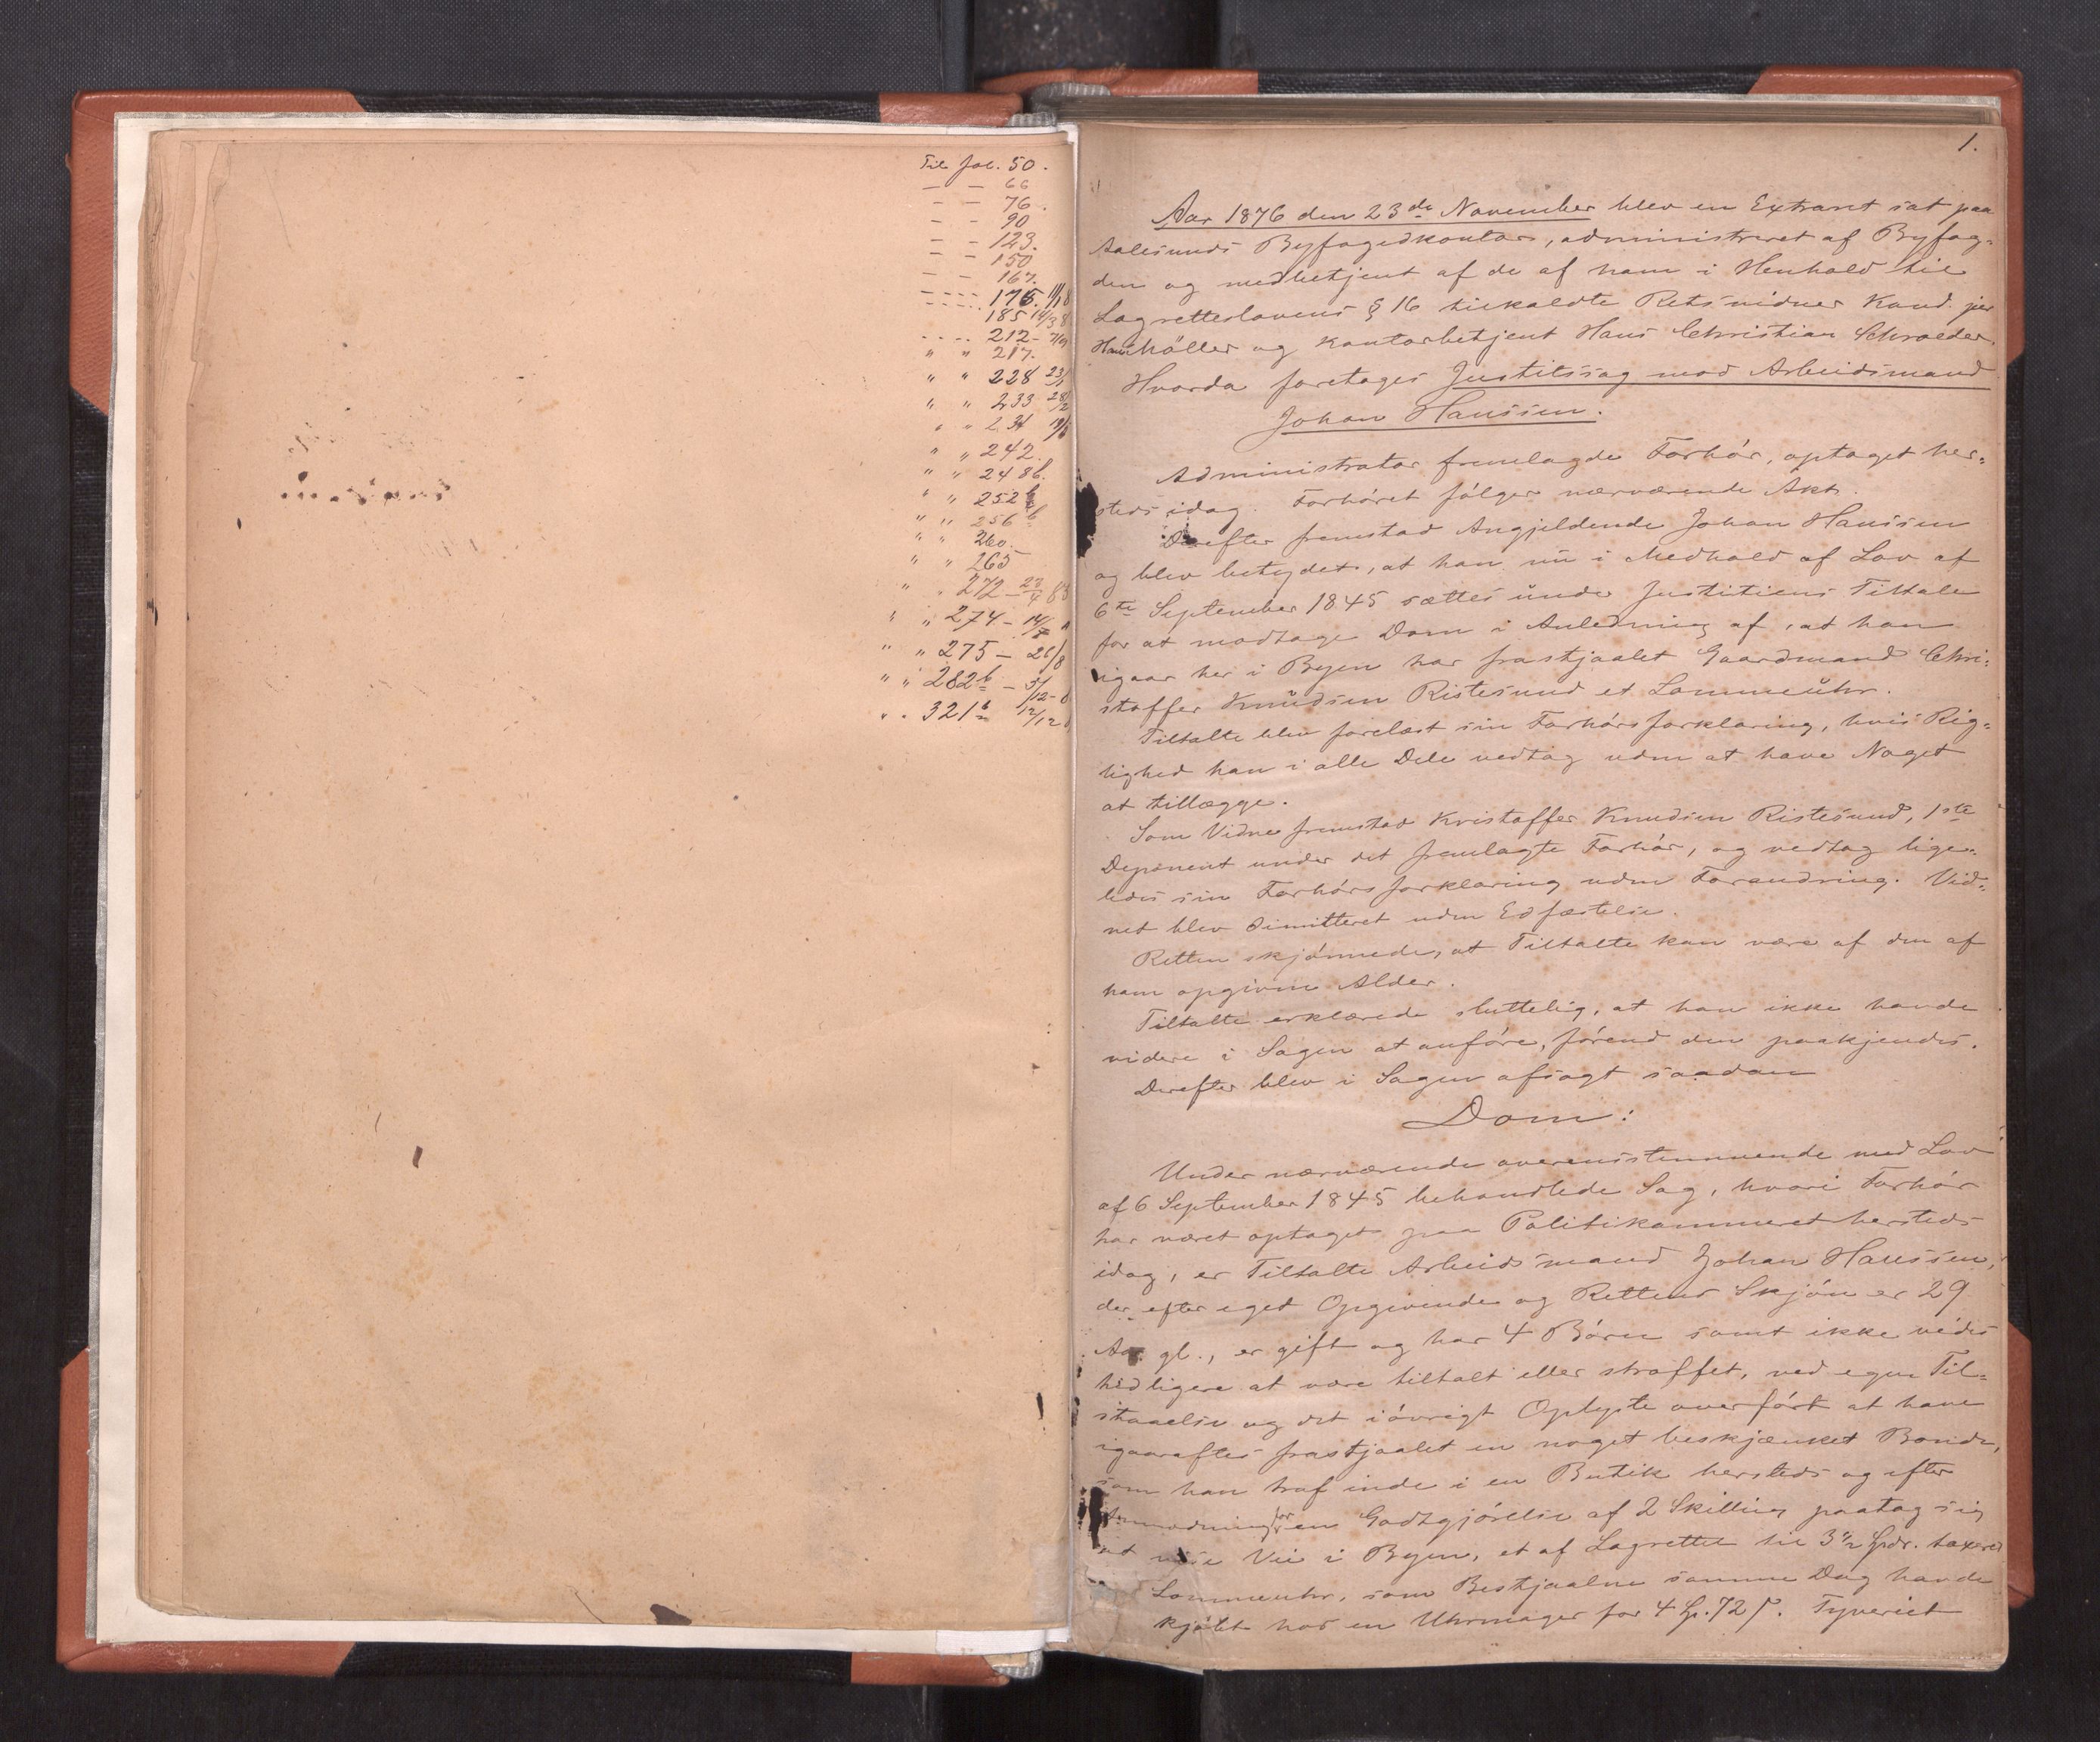 Til fol. 50.
— — 66
— — 76.
— — 90
— — 123.
— — 150
— — 167.
175.
185
212
" " 217.
" " 228 23/1
" " 233 28/2
" " 234
" " 242.
" " 248b.
" " 252b
" " 256b
" " 260.
" " 265
" " 272 — 23/4 88
" " 274 — 14/5
" " 275 — 26/8
" " 282b — 5/12
" " 321b 12/12
1.
Aar 1876 den 23de November blev en Extraret sat paa
Aalesunds Byfogedkontor, administreret af Byfog-
den og medbetjent af de af ham i Henhold til
Lagretteslovens § 16 tilkaldte Retsvidner Kand. jur
Møller og Kontorbetjent Hans Christian Schrøeder.
Hvorda foretoges Justitssag mod Arbeidsmand
Johan Hanssen.
Administrator fremlagde Forhör, optaget her-
steds idag. Forhöret fölger nærværende Akt.
Derefter fremstod Angjeldende Johan Hanssen
og blev betydet, at han nu i Medhold af Lov af
6te September 1845 sættes under Justitiens Tiltale
for at modtage Dom i Anledning af, at han
igaar her i Byen har frastjaalet Gaardmand Chri-
stoffer Knudsen Ristesund et Lommeuhr.
Tiltalte blev forelæst sin Forhörsforklaring, hvis Rig-
tighed han i alle Dele vedtog uden at have Noget
at tillægge.
Som Vidne fremstod Kristoffer Knudsen Ristesund, 1ste
Deponent under det fremlagte Forhör, og vedtog lige-
ledes sin Forhörsforklaring uden Forandring. Vid-
net blev dimitteret uden Edfæstelse.
Retten skjönnede, at Tiltalte kan være af den af
ham opgivne Alder.
Tiltalte erklærede sluttelig, at han ikke havde
videre i Sagen at anföre, förend den paakjendes.
Derefter blev i Sagen afsagt saadan
Dom:
Under nærværende overensstemmende med Lov
af 6 September 1845 behandlede Sag, hvori Forhör
har været optaget paa Politikammeret hersteds
idag, er Tiltalte Arbeidsmand Johan Hanssen,
der efter eget Opgivende og Rettens Skjön er 29
Aar gl., er gift og har 4 Börn samt ikke vides
tidligere at være tiltalt eller straffet, ved egen Til-
staaelse og det iövrigt Oplyste overfört at have
igaaraftes frastjaalet en noget beskjænket Bonde,
som han traf inde i en Butik hersteds og efter
Anmodning for en Godtgjörelse af 2 Skilling paatog sig
at vise Vei i Byen, et af Lagrettet til 3 1/2 Spdr. taxeret
Lommeuhr, som Bestjaalne samme Dag havde
kjöbt hos en Uhrmager for 4 Sp. 72 s. Tyveriet